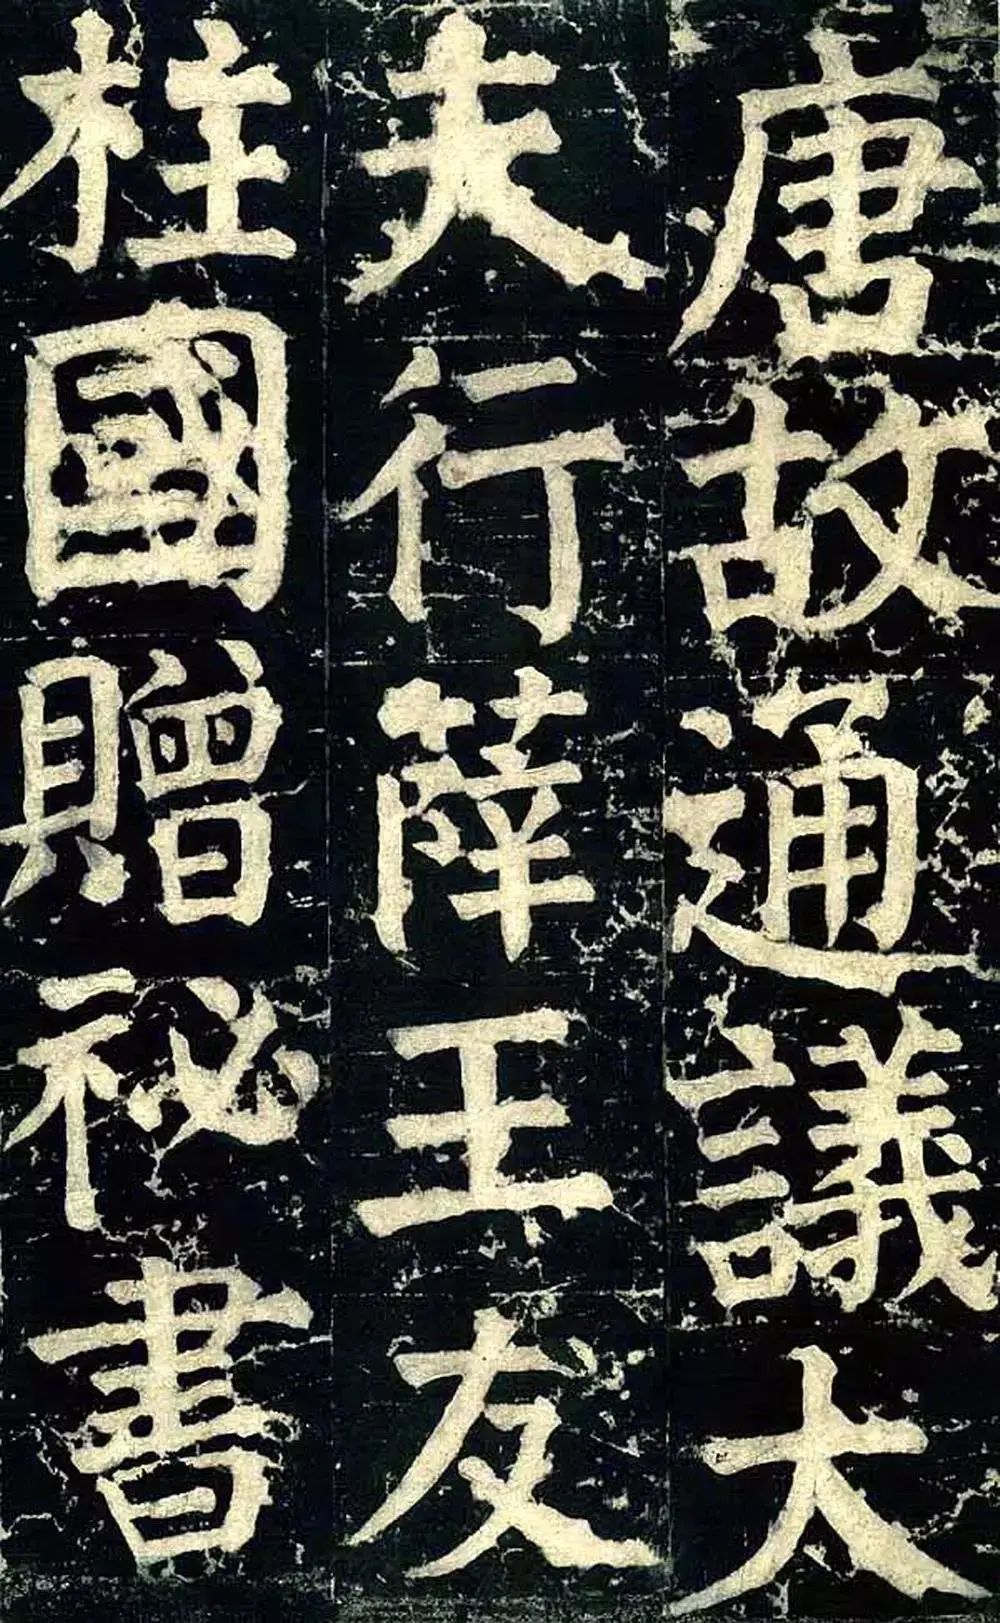 唐故通議大
夫行薛王友
柱國贈秘書